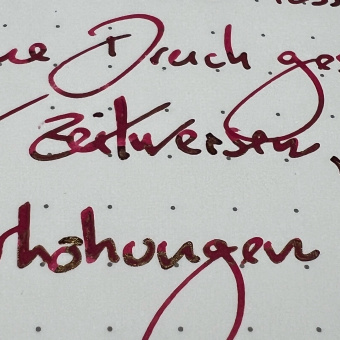 ne Druck ges
zeitweisen
höhungen